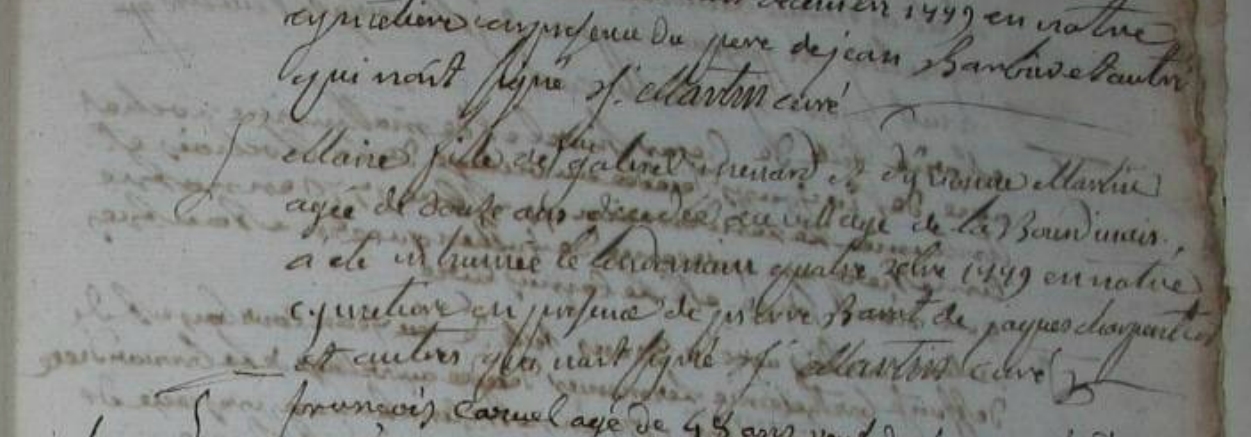 en 1779 en notre
cymetiere en presence du pere de jean et autres
qui n'ont signé J. Martin curé
Marie fille de gabriel menard et d'yvonne Martin
agée de douze ans decedée au village de la
a eté inhumée le lendemain quatre xbre 1779 en notre
cymetiere en presence de pierre de paques charpentier
et autres qui n'ont signé J. Martin curé
françois agé de 48 ans